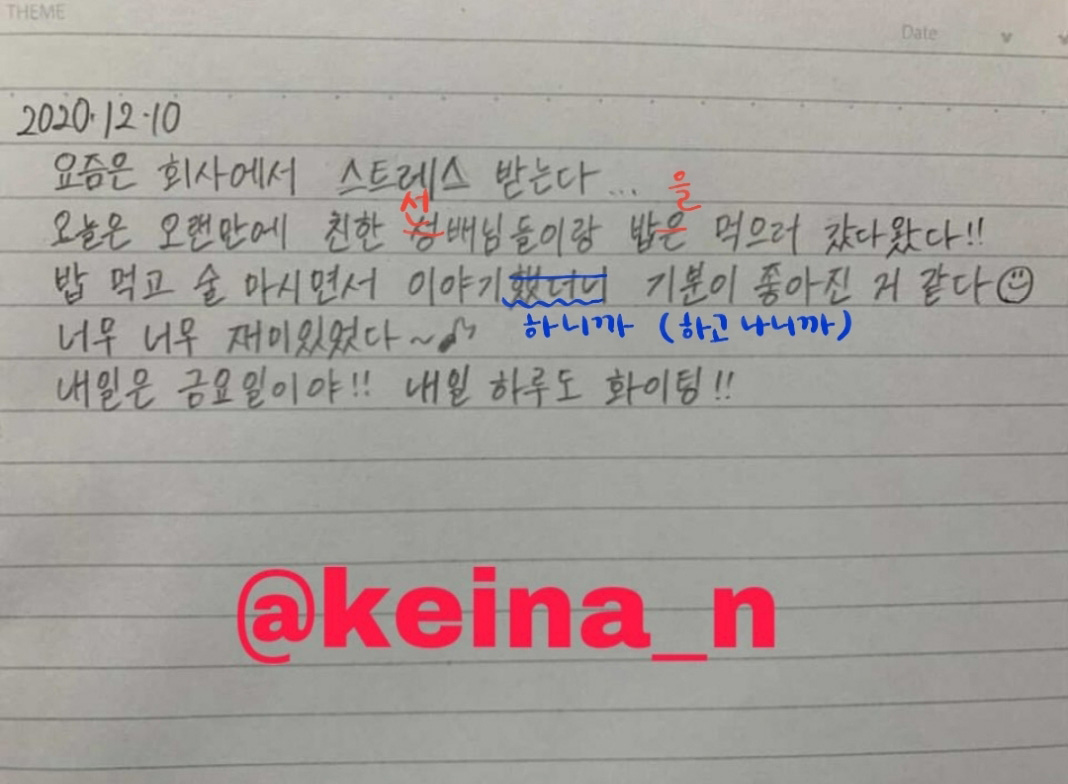 THEME
Date
2020.12.10
요즘은 회사에서 스트레스 받는다...
서 을
오늘은 오랜만에 친한 성배님들이랑 밥은 먹으러 갔다왔다!!
밥 먹고 술 마시면서 이야기했더니 기분이 좋아진 거 같다
하니까 (하고 나니까)
너무 너무 재미있었다~♪
내일은 금요일이야!! 내일 하루도 화이팅!!
@keina_n